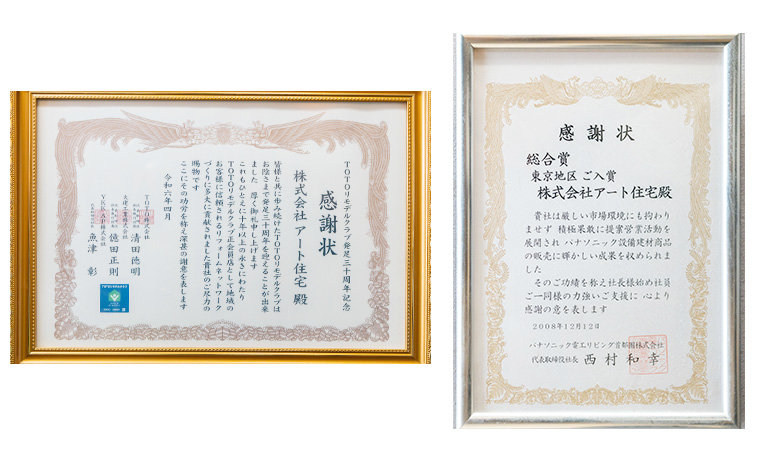 TOTOリモデルクラブ発足三十周年記念
感謝状
株式会社 アート住宅 殿
皆様と共に歩み続けたTOTOリモデルクラブは
お陰さまで発足三十周年を迎えることが出来
ました 厚く御礼申し上げます
これもひとえに十年以上の永きにわたり
TOTOリモデルクラブ正会員店として地域の
お客様に信頼されるリフォームネットワーク
づくりに多大に貢献されました貴社のご尽力の
賜物です
ここにその功労を称え深甚の謝意を表します
令和六年四月
TOTO株式会社
清田徳明
大建工業株式会社
億田正則
YKK AP株式会社
魚津 彰
感謝状
総合賞
東京地区 ご入賞
株式会社アート住宅殿
貴社は厳しい市場環境にも拘わり
ませず 積極果敢に提案営業活動を
展開され パナソニック設備建材商品
の販売に輝かしい成果を収められま
した
そのご功績を称え社長様始め社員
ご一同様の力強いご支援に 心より
感謝の意を表します
2008年12月12日
パナソニック電工リビング首都圏株式会社
代表取締役社長 西村和幸